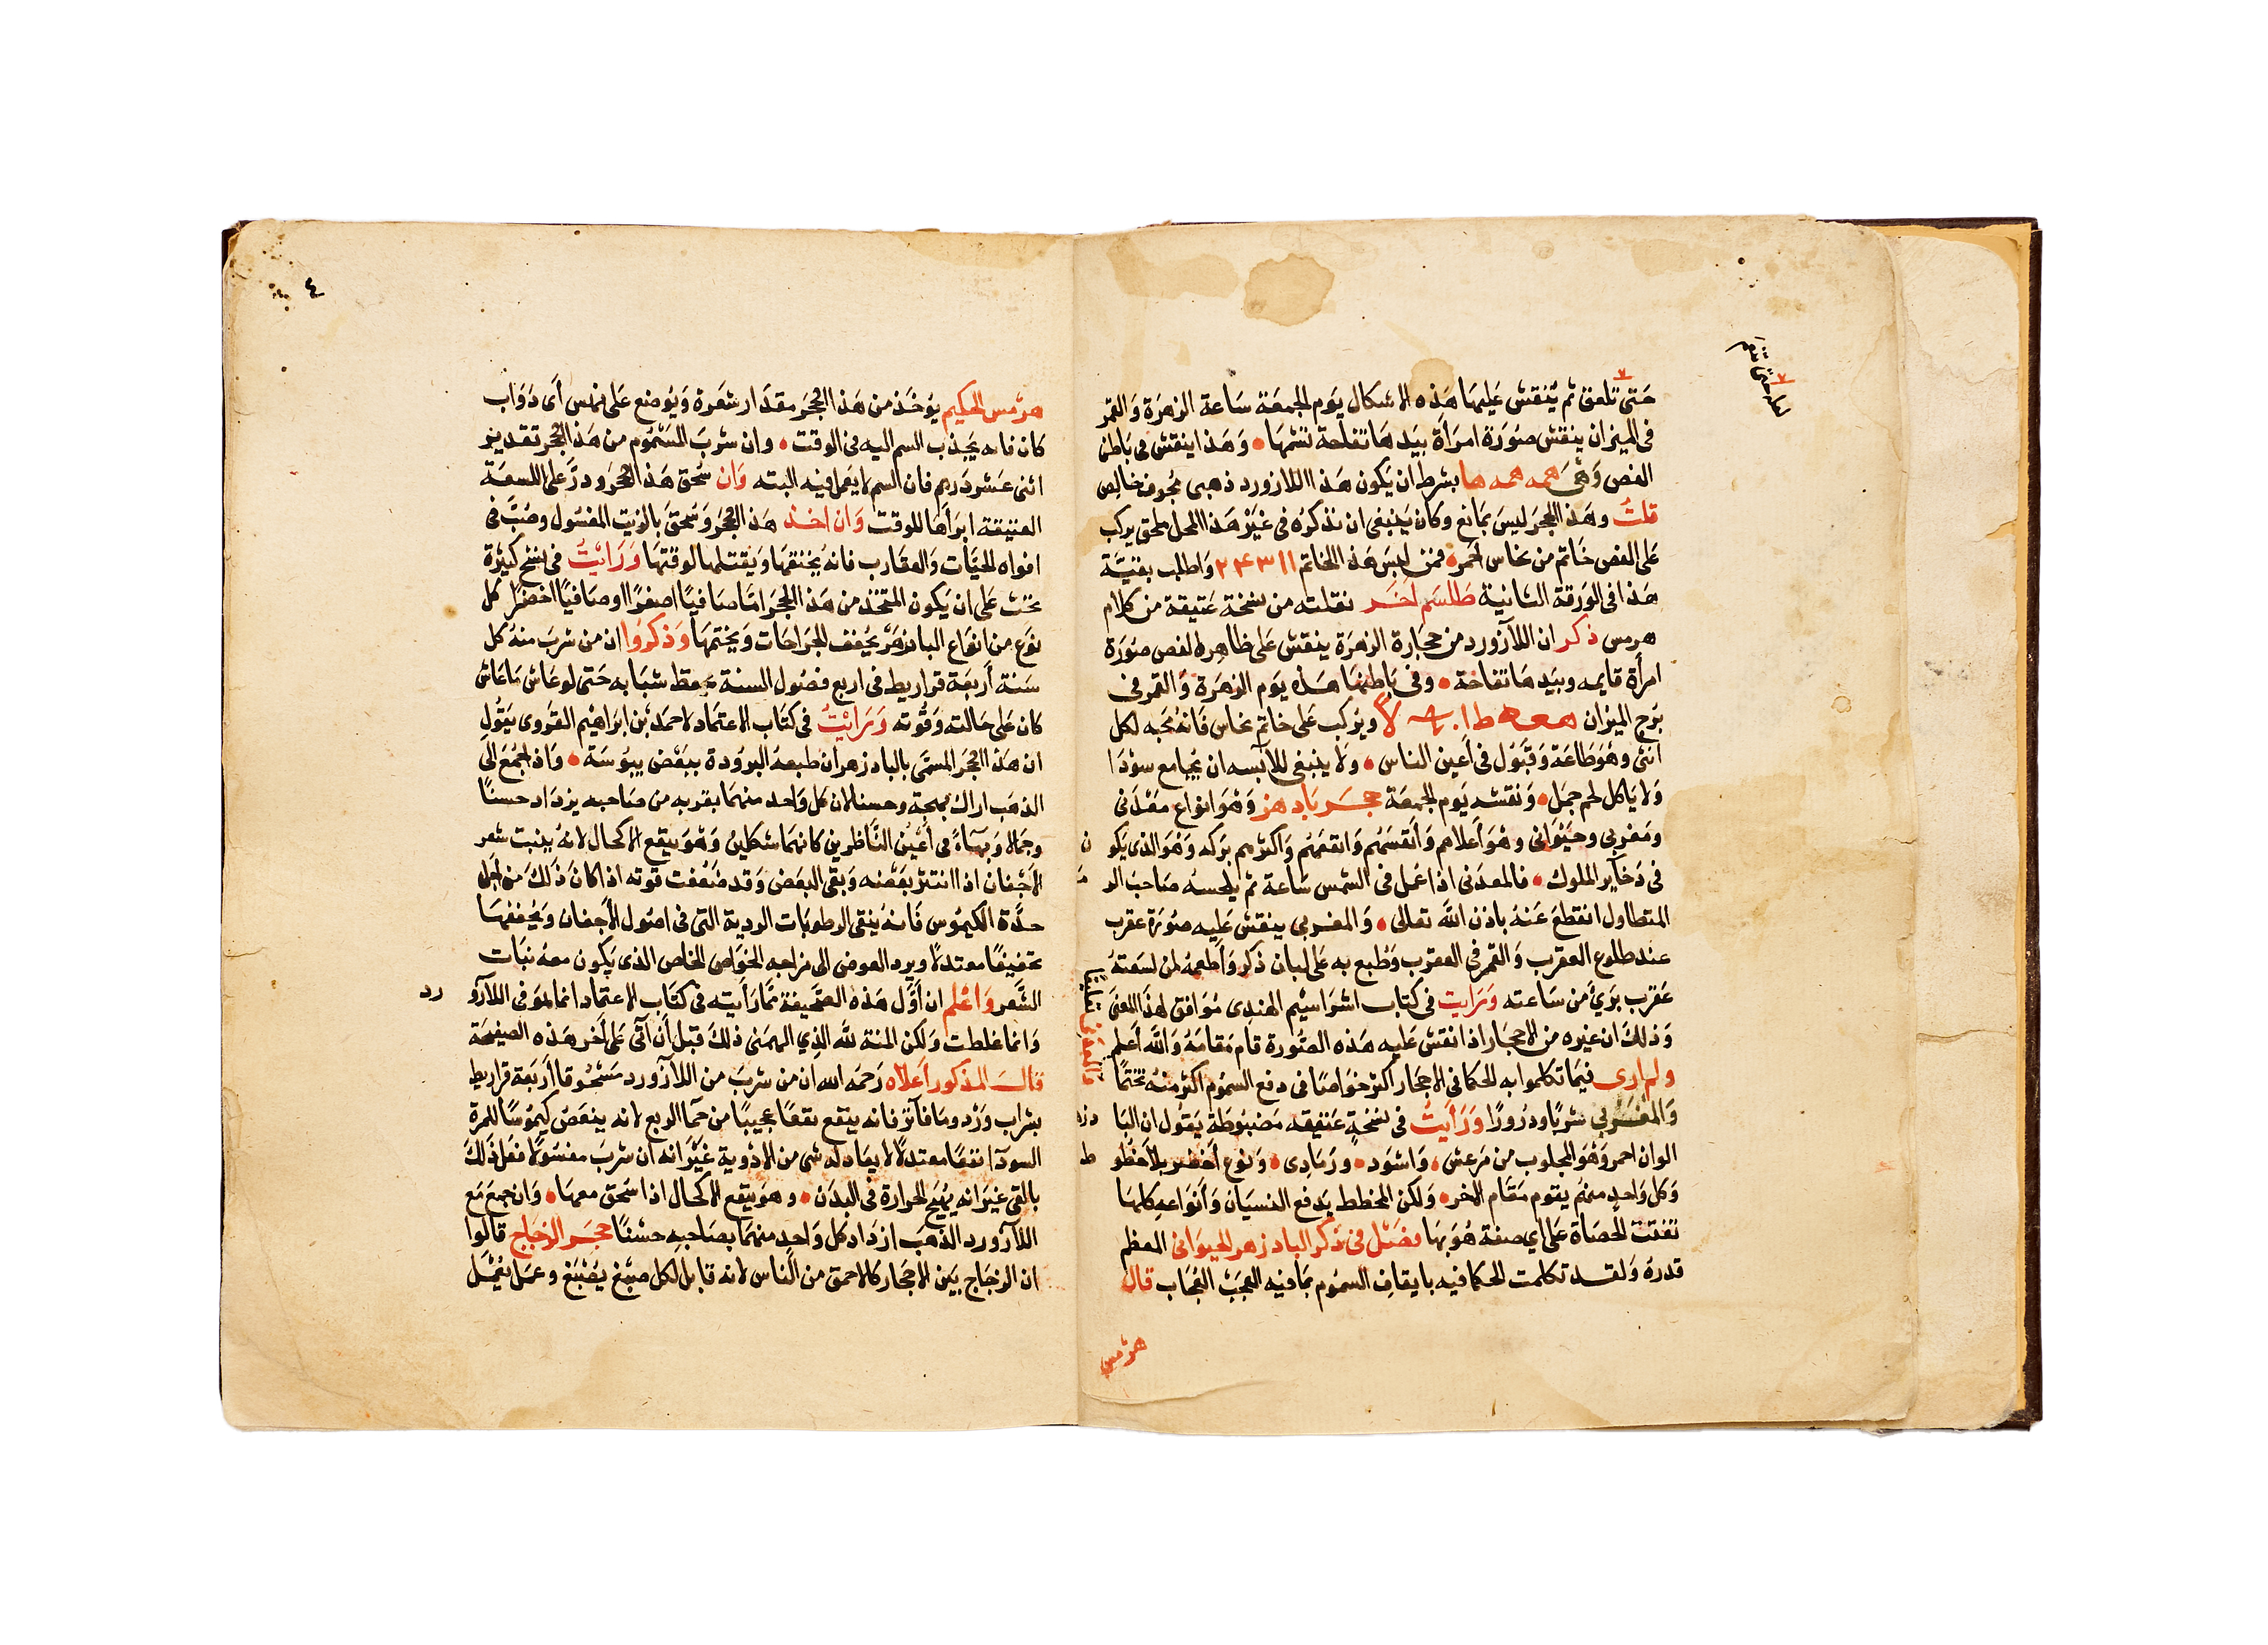 حَتى تلعق ثم يُنقش عَليهَا هَذه الاشكال يَوم الجمعَة سَاعة الزهرَة وَالقمر
فى الميزان ينقش صُورَة امرَأة بيَدهَا تفاحة تشمهَا وَهَذا ينقش فى بَاطن
الفص وَهىَ همه همه ها بشرط ان يَكون هَذا اللازورد ذهبى مُجوف خالِص
قلتُ وهَذا الحجرَ ليسَ بمَانع وكان يَنبغى ان نذكرُه فى غيَرْ هَذا المحل ملحق يركب
عَلى الفص خَاتم من نحاس احمَر فمن لبسَ هَذا الخاتم ١١ ٣ ۴ ٢ وَاطلب بقيَّة
هَذا فى الوَرقة الثانية طَلسَم اَخَر نقلته من نسخة عَتيقة من كلام
هرمس ذكر ان اللآزورد من حجَارة الزهرَة ينقش عَلى ظاهِره لفص صُورَة
امرأة قايمه وبيَدهَا تفاحَة وفى بَاطنهَا هَذه يَوم الزهرَة وَالقمر فى
بَرج الميْزان ويرُكب عَلى خاتم نحاس فَانه محَبه لكل
انثى وهْوَ طَاعَة وَقبَوُل فى اَعين الناس وَلا يَنبغى للآبسه ان يُجامع سَودَا
وَلا يَاكل لحم جمَل وَنقشه يَوم الجمعَة حجَر بَادهز وَهْوَ انواع مَعْدَنى
ومَغربى وحَيْوَانى وهْوَ أعلاهم وَأنفسَهُم وَانفعَهُم وَاكثرهم بَركه وَهْوَ الذى يَكون
فى ذخَآير الملوك فالمعدَنى اذا عُمل فى الشمس سَاعة ثم يلحسهُ صَاحبَ الر
المتطاول انقطعَ عَنهُ باذن اللهَّ تعالى وَالمغربى ينقش عَليه صُورَة عقرب
عند طلوع العقرب وَالقمر فى العقرب وَطُبع به عَلى لبان ذكر وَأطعمهُ لمن لسَعتهُ
عَقرب بَرئَ من سَاعته وَرَايت فى كتاب اشوَاسِيْم الهندى مُوَافق لهذا المعَنى
وَذلك ان غيره من الاحجَار اذا نقش عَليه هَذه الصُورة قام مَقامَهُ وَاللهَّ أعلم
ولم ارى فيمَا تكلموا به الحكما فى الاحجَار اكثر خوَاصًا فى دفع السمُوم اكثر منهُ تختمًا
وَالمغَربى شربًا ودرُورًا وَرَأيتُ فى نسخةٍ عَتيقه مَضبُوطة يَقوُل ان البَادزهر
الوان احمر وَهْوَ المجلوب من مَرعش وَاسْوَد ورَمَادى وَنوع أخضر بلاخطوط
وَكل وَاحدٍ منهُم يقوم مَقام الاخر وَلكن المخطط يَدفع النسيَان وَأنوَاعه كلهَا
تفتت الحصَاة عَلى اى صفة هُوَ بهَا فَصْل فى ذكر البادزهر الحيوَانى المعظم
قدرهُ وَلقد تكلمت الحكما فيه بايقاف السمُوم بمَا فيه العجَبَ العُجَاب قال
هرمس
٤
هرمس الحكيم يوُخَذ من هَذا الحجَر مقدَار شعرَة وَيُوضع عَلى فم اى دَوَاب
كان فانه يَجذب السم اليه فى الوقت وان شربَ المسَمُوم من هَذا الحجر تقدير
اثنى عَشر دَرهم فان السم لا يَعمل فيه البته وَان سُحق هَذا الحجَر ودرَّ على اللسعَة
العتيقة ابرَأهَا للوقت وَان اخذ هَذا الحجَرَ وَسُحقَ بالزيت المغسُول وصُبَّ فى
افواه الحيَّات وَالعقَارب فانهُ يُخنقهَا وَيقتلهَا لوقتهَا وَرَايتُ فى نسخ كثيرَة
تحث عَلى ان يَكون المتخَذ من هَذا الحجَر امَّا صَافيًا اصفرًا او صَافيًا اخضرًا كل
نوَع من انوَاع البادزهَرْ يُجفف الجرَاحَات وَيختمهَا وَذكرُوا ان من شربَ منهُ كل
سَنة اَربَعَة قرَاريط فى اربع فصُول السنة حفظ شبَابه حَتى لو عَاش مَا عَاش
كان عَلى حَالته وَقُوته وَرَائيتُ فى كتَاب الاعتمَاد لاحمَد بْن ابرَاهيْم القرَوى يَقُول
ان هَذا الحجَر المسمَّى بالبادزهر ان طبعهُ البرُودة ببَعْض يبُوسَة وَاذا جُمعَ الى
الذهَب اراك بهجة وحسنا لان كل وَاحد منهمَا بقربه من صَاحبه يزدَاد حسنًا
وجمَالا وَبهآءً فى أعْيُن النَّاظرين كانهمَا شكلينُ وَهْوَ ينفع الاكحال لانهُ ينبت شعر
الاَجْفان اذا انتثر بعَضْه وَبقى البعَض وَقد ضَعُفت قوته اذا كان ذَلكَ من اَجل
حدَّة الكيمُوس فَانهُ ينقى الرطوبَات الرديَة التى فى اصُول الأجفان وَيُجففهَا
تجفيفًا معتدلًا ويرد العوض الى مزاجه الخوَاص الخاص الذى يَكون معهُ نبَات
الشَّعر وَاعْلم ان أوَّل هَذه الصَّحيفة ممَّا رَأيته فى كتَاب الاعتمَاد انما هوَ فى اللآزورد
وَانما غلطت وَلكن المنة للهَّ الذِي الهمَنى ذلكَ قبل أن آتى عَلى أخر هَذه الصفيحَة
قالَ المذكور اَعلَاه رَحمَه الله ان من شربَ من اللآزورد مَسْحُوقا اَربعَة قرَاريط
بشراب وَرْد ومَا فآتر فانه ينفع نفعًا عجيبًا من حمَّا الربع لانه ينفض كيمُوسَا للمرة
السودَآ نفعًا معتدلًا لا يعَادله شى من الادْوية غيْرَ انه ان شربَ مغسُولًا فعَل ذَلكَ
بالقى غيَر انه يُهَيج الحرارة فى البدَن وهوَ ينفع الاكحَال اذا سَحق معهَا وَان جمعَ مَع
اللآزورد الذهَب ازدَاد كل وَاحدٍ منهمَا بصَاحبهِ حسْنًا حجَر الزجَاج قالُوا
ان الزجَاج بَين الاحجَار كالاحمق من النَّاس لانه قابل لكل صبْغ يَصْبَغ وعمَل يعُمْل